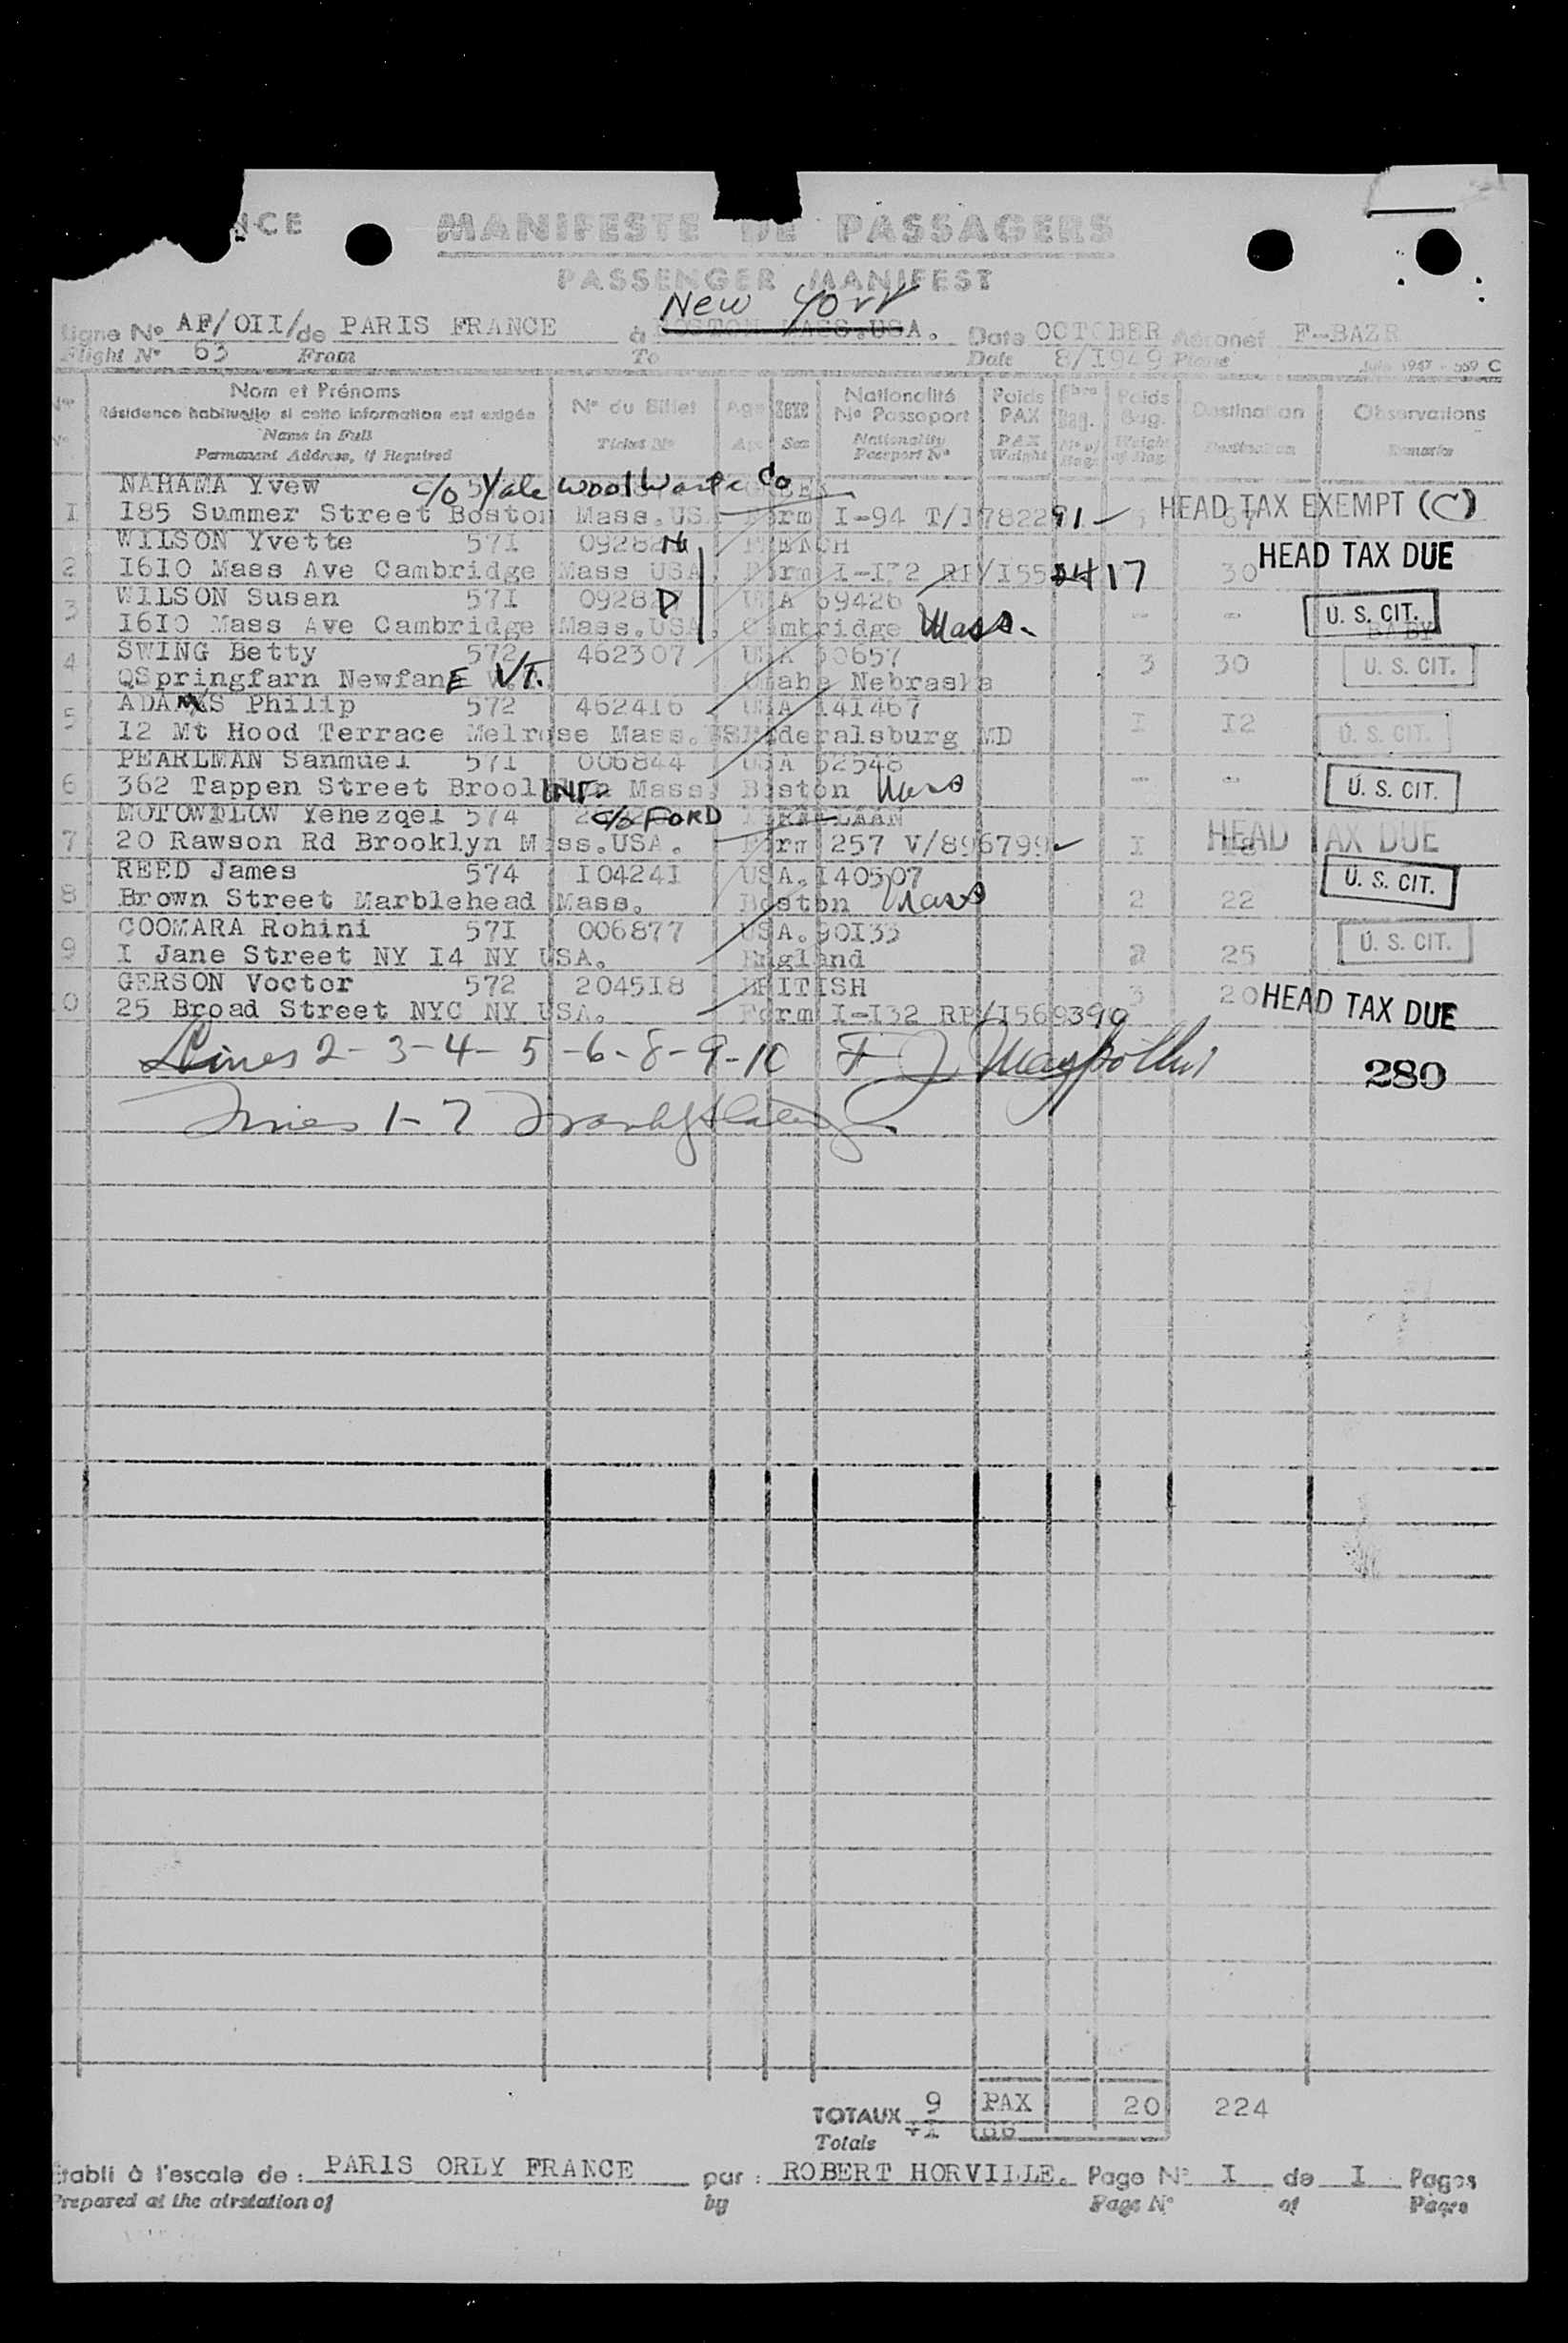 NCE MANIFESTE DE PASSAGERS
PASSENGER MANIFEST
New York
Ligne No AF/OII/ de PARIS FRANCE à BOSTON MASS.USA. Date OCTOBER Aéronef F-BAZR
Flight No 63 From To Date 8/I949 Plane 1947 - 559 C
Nom et Prénoms
Résidence habituelle si cette information est exigée
Name in Full
Permanent Address, if Required
No du Billet
Ticket No
Age
Age
Sexe
Sex
Nationalité
No Passeport
Nationality
Passport No
Poids
PAX
PAX
Weight
Bag.
No of
Bags
Poids
Bag.
Weight
of Bag.
Destination
Destination
Observations
Remarks
NAHAMA Yvew c/o Yale Woolwaste Co
I I85 Summer Street Boston Mass.US Form I-94 T/I782291 HEAD TAX EXEMPT (C)
WILSON Yvette 57I FRENCH
2 I6IO Mass Ave Cambridge Mass USA Form I-I32 RP/I55 417 30 HEAD TAX DUE
3 WILSON Susan 57I USA 69426
I6IO Mass Ave Cambridge Mass.USA. Cambridge Mass. - - U. S. CIT. BABY
4 SWING Betty 572 462307 USA 30657 3 30 U. S. CIT.
QSpringfarn NewfanE VT. Omaha Nebraska
5 ADAMS Philip 572 462416 USA I41467 I I2 U. S. CIT.
I2 Mt Hood Terrace Melrose Mass. Federalsburg MD
PEARLMAN Sanmuel 57I 006844 USA 52548
6 362 Tappen Street Brool Mass. Boston Mass - - U. S. CIT.
MOTOWDLOW Yehezqel 574 c/o FORD
7 20 Rawson Rd Brooklyn Mass.USA. Form 257 V/896799 I I8 HEAD TAX DUE
REED James 574 I04241 USA.I40507 U. S. CIT.
8 Brown Street Marblehead Mass. Boston Mass 2 22
COOMARA Rohini 57I 006877 USA.90I33 U. S. CIT.
9 I Jane Street NY I4 NY USA. England 2 25
GERSON Voctor 572 204518 BRITISH 3 20 HEAD TAX DUE
0 25 Broad Street NYC NY USA. Form I-I32 RP/I569390
Lines 2-3-4-5-6-8-9-10 F J
280
Lines 1-7
TOTAUX 9 PAX 20 224
Totals +I BB
Etabli à l'escale de : PARIS ORLY FRANCE par : ROBERT HORVILLE. Page No I de I Pages
Prepared at the airstation of by Page No of Pages